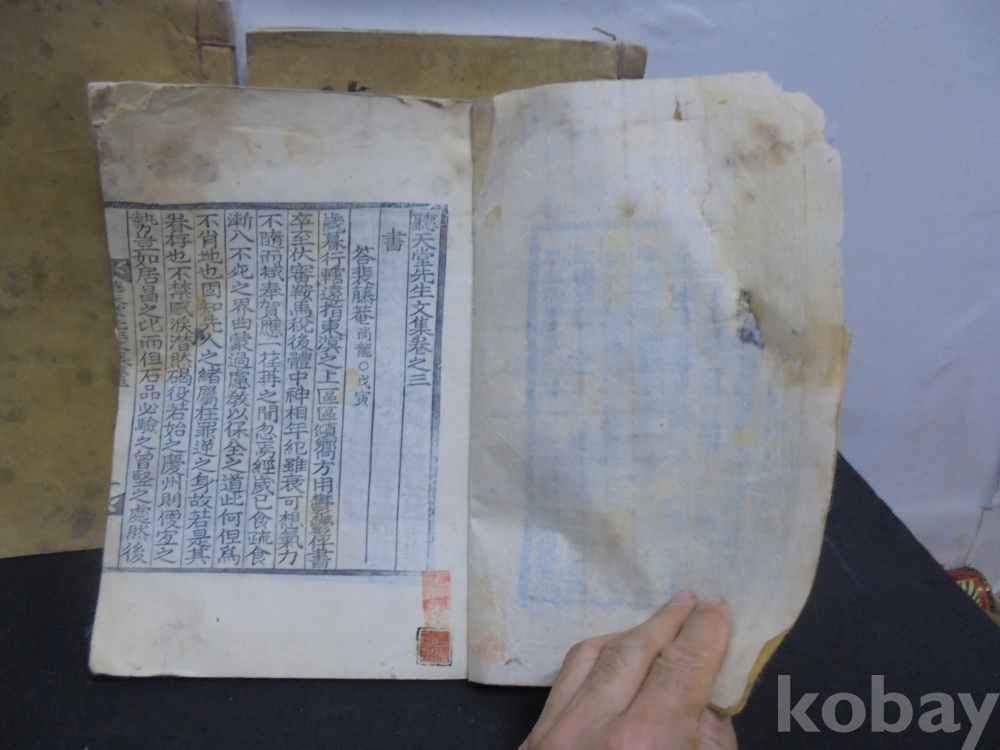 聽天堂先生文集卷之三
書
答裴藤菴尚龍○戊寅
歲暮行轄遠指東溟之上區區傾嚮方用鬱鬱俘書
卒至伏審鞍馬稅後體中神相年紀雖衰可想氣力
不隨而減奉賀應一荏苒之間忽焉經歲已食疏食
漸入不死之界曲蒙過慮敎以保全之道此何但爲
不肖地也固知先人之緖屬在罪逆之身故若是其
眷存也不禁感淚潛然碣役若始之慶州則便宜之
勢豈如居昌之比而但石品必驗之曾竪之處然後
kobay